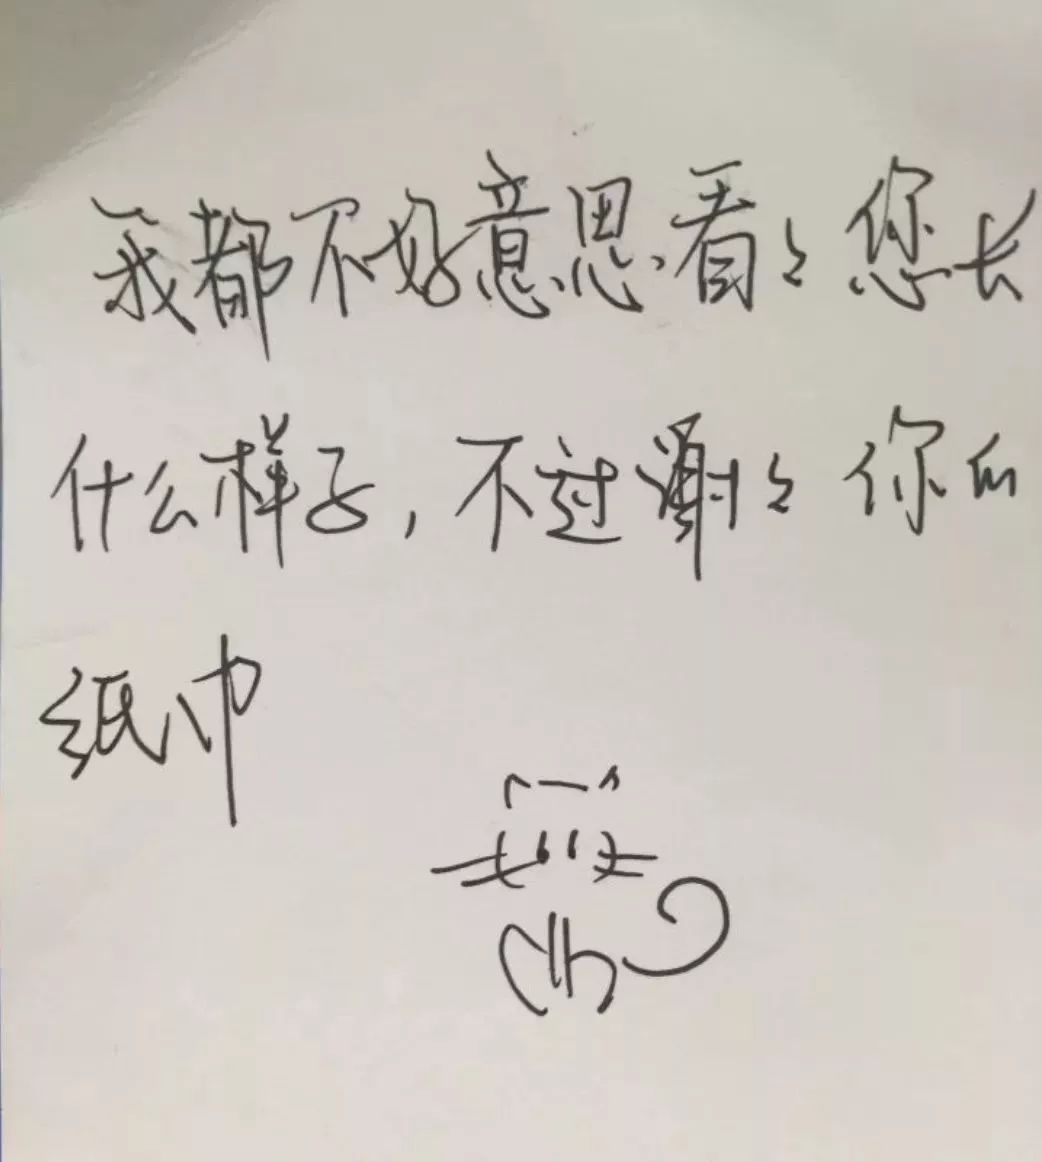 我都不好意思看々您长
什么样子,不过谢々你的
纸巾